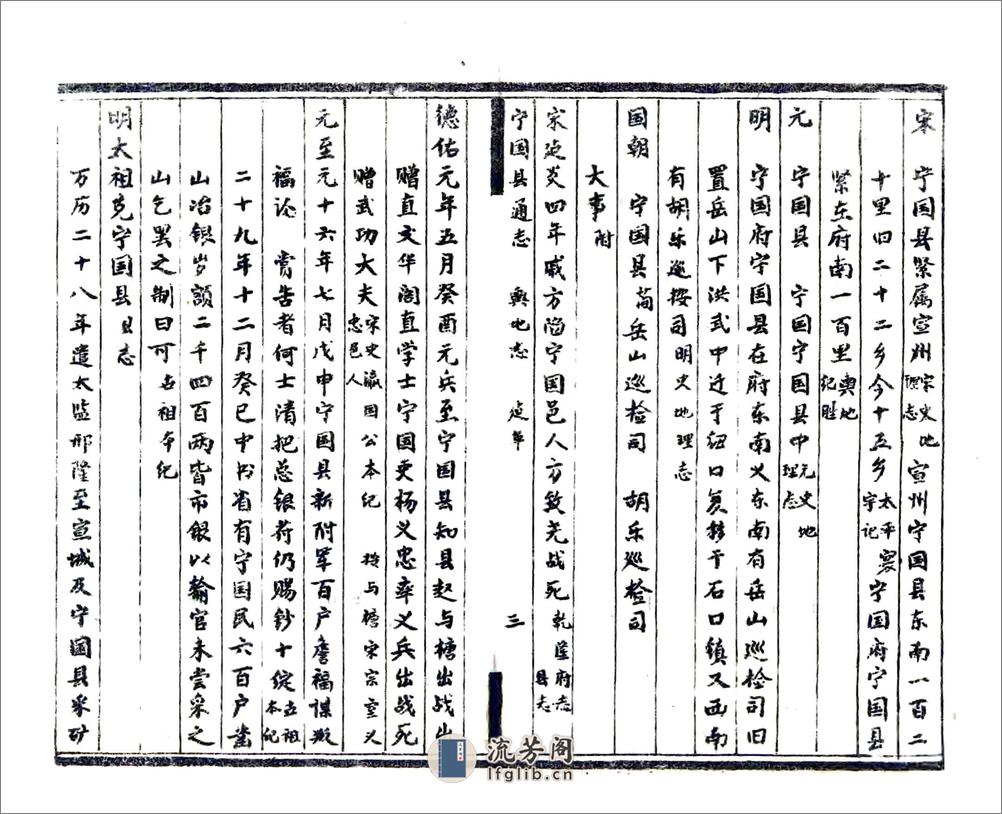 宋　宁国县紧属宣州宋史地理志宣州宁国县东南一百二
十里旧二十二乡今十五乡太平寰宇记宁国府宁国县
紧在府南一百里舆地纪胜
元　宁国县　宁国宁国县中元史地理志
明　宁国府宁国县在府东南义东南有岳山巡检司旧
置岳山下洪武中迁于纽口复移于石口镇又西南
有胡乐巡按司明史地理志
国朝　宁国县苟岳山巡检司　胡乐巡检司
大事附
宋延炎四年戚方陷宁国邑人方致尧战死乾隆府志县志
宁国县通志　舆地志　延革　三
德佑元年五月癸酉元兵至宁国县知县赵与榶出战出
赠直文华阁直学士宁国吏杨义忠率义兵出战死
赠武功大夫宋史瀛国公本纪　按与榶宋宗室义忠邑人
元至元十六年七月戊申宁国县新附军百户詹福谋叛
福论　赏告者何士清把总银符仍赐钞十绽立祖本纪
二十九年十二月癸巳中书省有宁国民六百户凿
山冶银岁额二千四百两皆市银以输官未尝采之
山乞罢之制曰可古祖本纪
明太祖克宁国县县志
万历二十八年遣太监邢隆至宣城及宁国县采矿
流芳阁
lfglib.cn